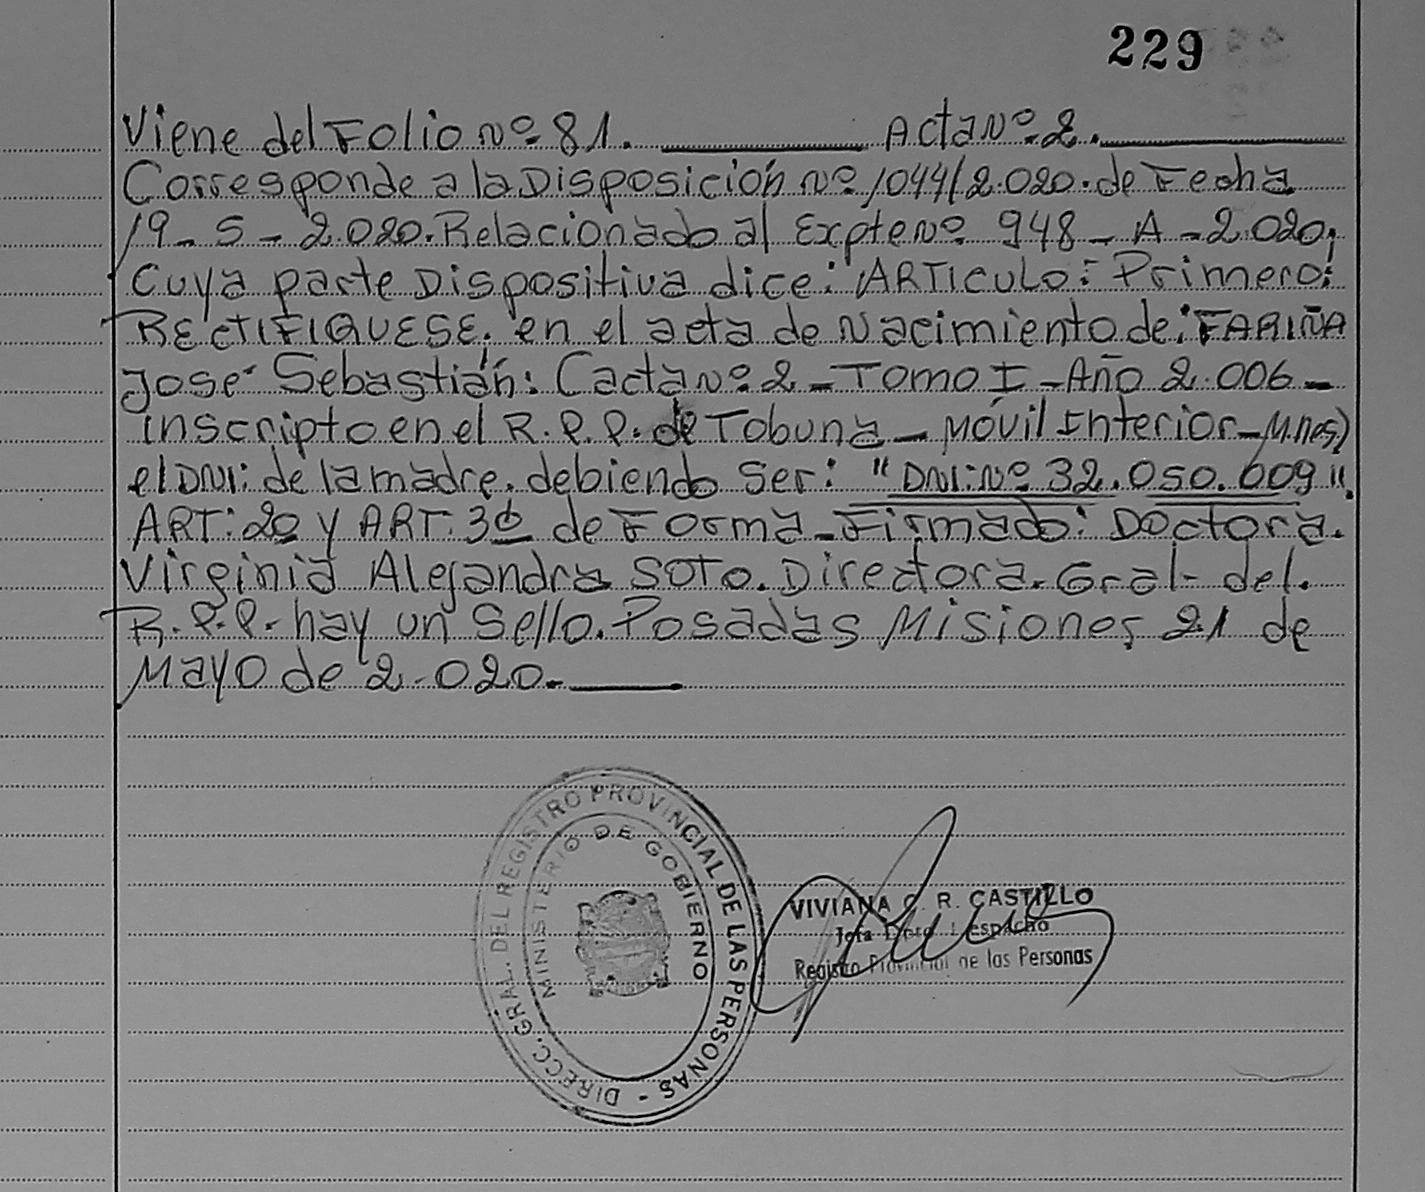 229
Viene del Folio Nº 81. Acta Nº 2.
Corresponde a la Disposición Nº 1044/2.020. de Fecha
19-5-2.020. Relacionado al Expte Nº 948-A-2.020,
Cuya parte Dispositiva dice: ARTICULO: Primero:
RECTIFIQUESE. en el acta de Nacimiento de: FARIÑA
José Sebastián: (acta Nº 2-Tomo I-Año 2.006-
inscripto en el R.P.P. de Tobuna-Móvil Interior-Mnes)
el DNI: de la madre. debiendo ser: "DNI: Nº 32.050.609".
ART: 2º y ART: 3º de Forma-Firmado: Doctora.
Virginia Alejandra SOTO. Directora. Gral- del.
R.P.P. hay un Sello. Posadas Misiones 21 de
Mayo de 2.020.
DIRECC. GRAL. DEL REGISTRO PROVINCIAL DE LAS PERSONAS -
MINISTERIO DE GOBIERNO
VIVIANA C. R. CASTILLO
Jefa Dpto Despacho
Registro Provincial de las Personas